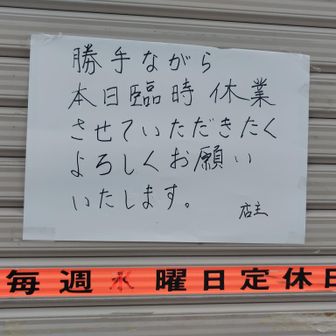 勝手ながら
本日臨時休業
させていただきたく
よろしくお願い
いたします。
店主
毎週水曜日定休日